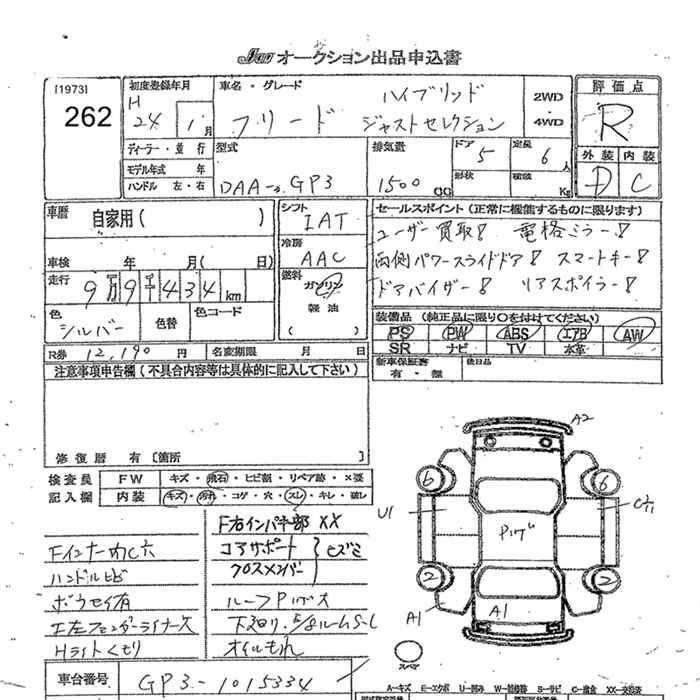 JU オークション出品申込書
[1973] 262
初度登録年月 H 24年 1月
車名・グレード フリード ハイブリッド ジャストセレクション
2WD・4WD
評価点 R
外装 D 内装 C
ディーラー・並行
モデル年式 年
ハンドル 左・右
型式 DAA-GP3
排気量 1500 CC
ドア 5 定員 6人
形状 積載 Kg
車歴 自家用( )
シフト IAT
車検 年 月( 日)
冷房 AAC
走行 9万9千434km
燃料 ガソリン・軽油 ( )
色 シルバー 色替 色コード
R券 12,190円 名変期限 月 日
セールスポイント(正常に機能するものに限ります)
ユーザー買取! 電格ミラー!
両側パワースライドドア! スマートキー!
ドアバイザー! リアスポイラー!
装備品(純正品に限り○を付けてください)
PS PW ABS エアB AW
SR ナビ TV 本革
新車保証書 有・無 後日品
注意事項申告欄(不具合内容等は具体的に記入して下さい)
修復歴 有〔箇所 〕
検査員記入欄
FW キズ・飛石・ヒビ割・リペア跡・×要
内装 キズ・汚れ・コゲ・穴・スレ・キレ・破レ
F右インパネ部 XX
Fインナーわレ穴 コアサポート
ハンドルヒビ クロスメンバー } ヒズミ
ボウセイ有 ルーフPハゲ大
エ左フェンダーライナー欠
Hライトくもり オイルもれ
車台番号 GP3-1015334
A2
6 6
U1
Pハゲ
2 2
A1 A1
スペア
A-キズ E-エクボ U-凹み W-補修跡 S-サビ C-腐食 XX-交換済